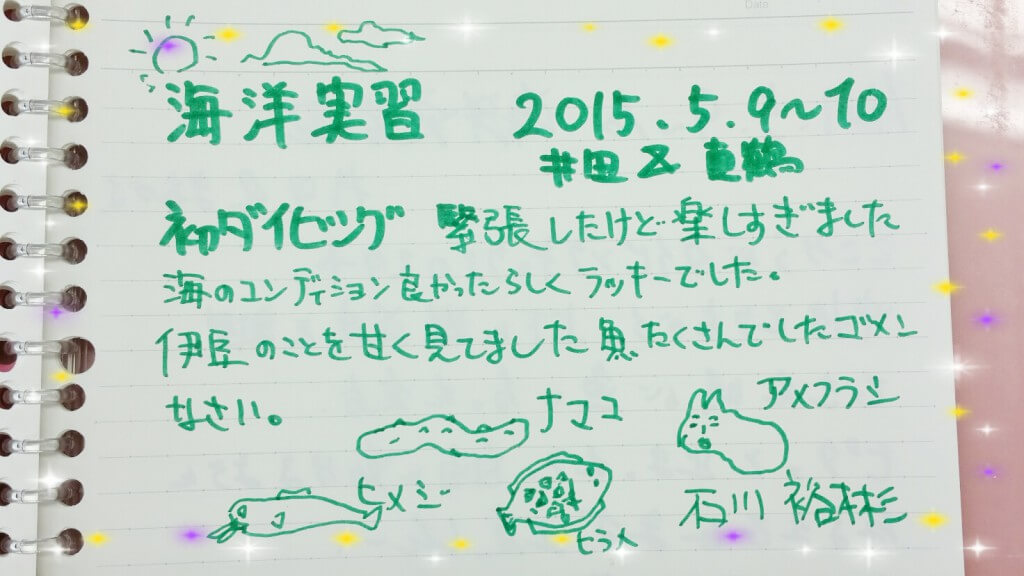 Date
海洋実習 2015.5.9~10
井田&真鶴
初ダイビング 緊張したけど楽しすぎました
海のコンディション良かったらしくラッキーでした。
伊豆のことを甘く見てました魚たくさんでしたゴメン
なさい。 ナマコ アメフラシ
ヒメジ ヒラメ 石川